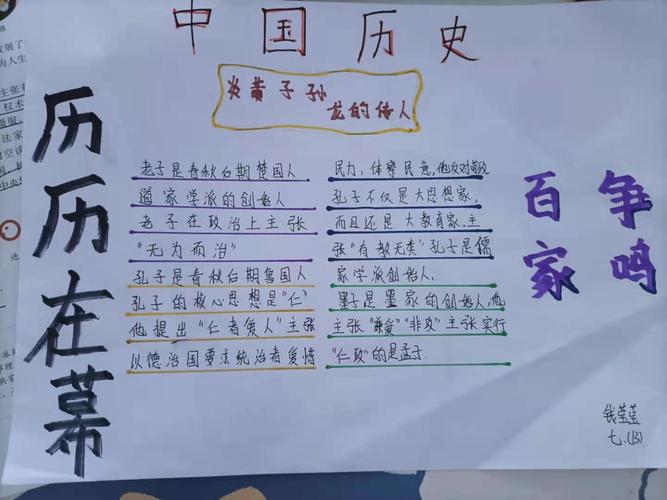 中国历史
炎黄子孙
龙的传人
历历在幕
老子是春秋后期楚国人
道家学派的创始人
老子在政治上主张
"无为而治"
孔子是春秋后期鲁国人
孔子的核心思想是"仁"
他提出"仁者爱人"主张
以德治国要求统治者爱惜
民力，体察民意，他反对苛政
孔子不仅是大思想家，
而且还是大教育家，主
张"有教无类"孔子是儒
家学派创始人.
墨子是墨家的创始人，他
主张"兼爱""非攻"主张实行
"仁政"的是孟子.
百家
争鸣
钱莹莹
七.(13)